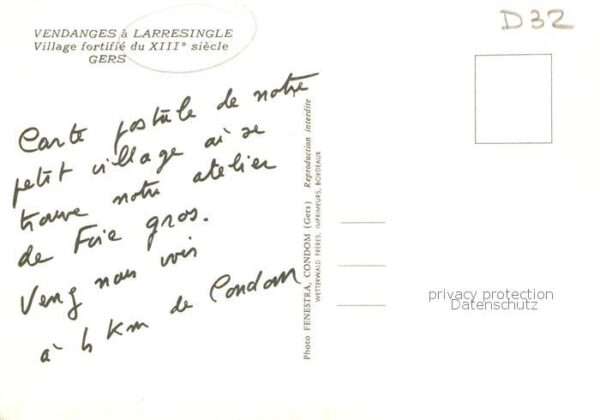 VENDANGES à LARRESINGLE
Village fortifié du XIII° siècle
GERS
D32
Carte postale de notre
petit village où se
trouve notre atelier
de Foie gros.
Venez nous voir
à 4 km de Condom
Photo FENESTRA, CONDOM (Gers) Reproduction interdite
WETTERWALD FRÈRES, IMPRIMEURS, BORDEAUX
privacy protection
Datenschutz